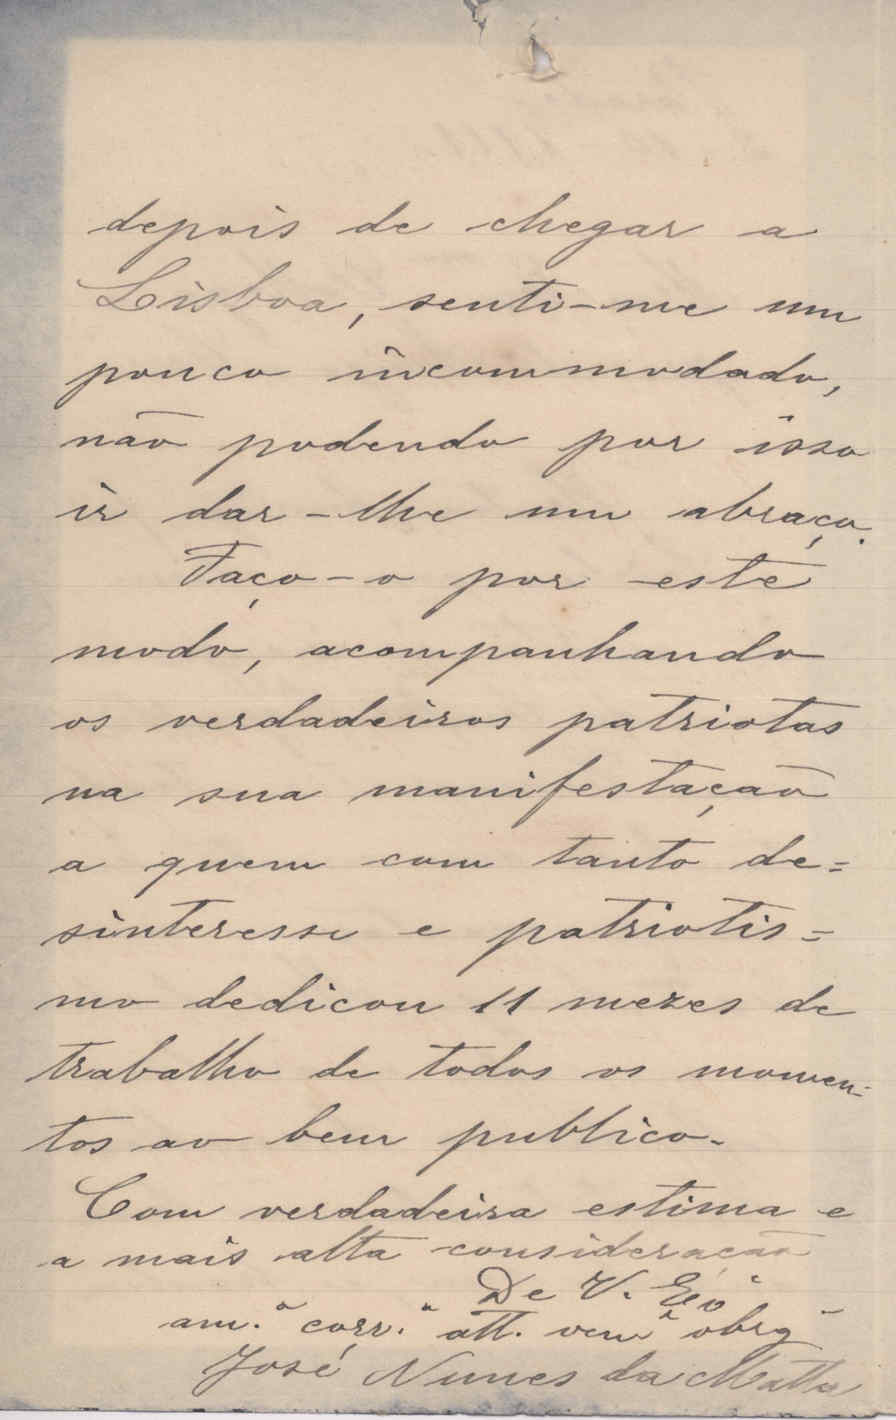 depois de chegar a
Lisboa, senti-me um
pouco incommodado,
não podendo por isso
ir dar-lhe um abraço.
Faço-o por este
modo, acompanhando
os verdadeiros patriotas
na sua manifestação
a quem com tanto de=
sinteresse e patriotis=
mo dedicou 11 mezes de
trabalho de todos os momen-
tos ao bem publico.
Com verdadeira estima e
a mais alta consideração
De V. Exª
am.º corr.º att. ven.º obrg
José Nunes da Matta